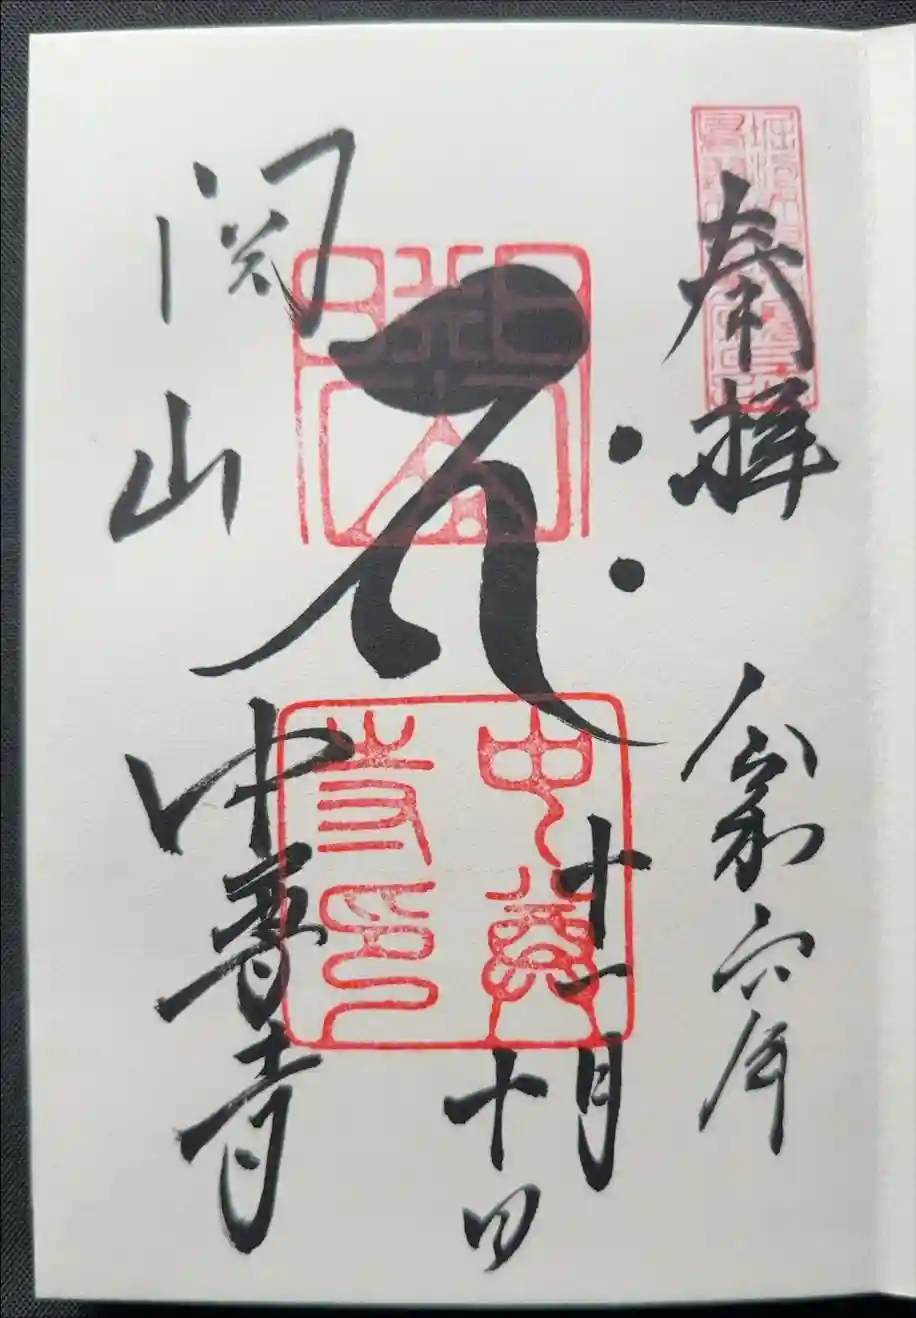 奉拝
令和六年
十一月
十日
中尊
寺印
関山
中尊寺